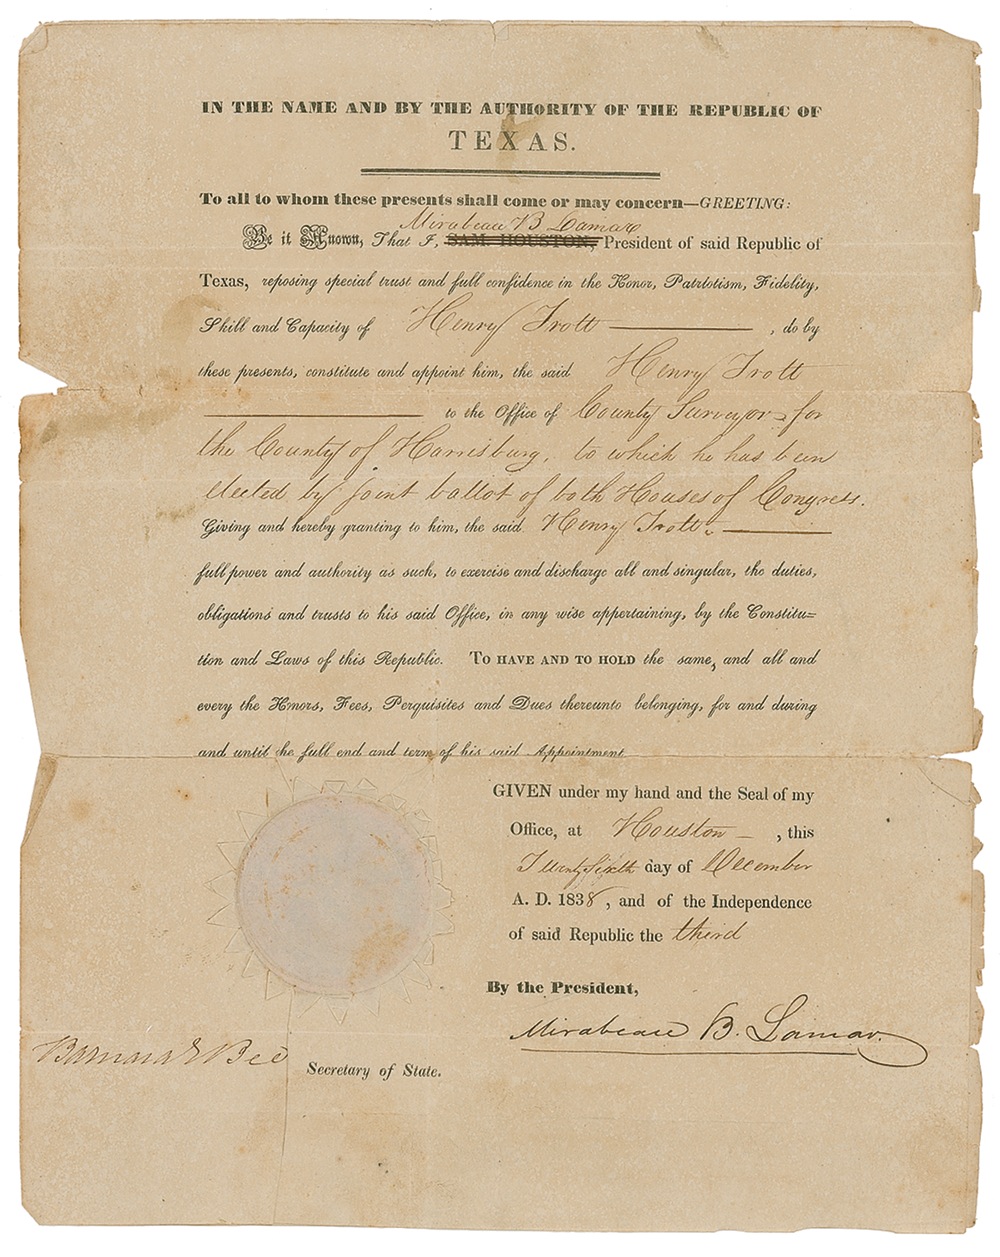 IN THE NAME AND BY THE AUTHORITY OF THE REPUBLIC OF
TEXAS.
To all to whom these presents shall come or may concern—GREETING:
Mirabeau B Lamar
Be it Known, That I, SAM HOUSTON, President of said Republic of
Texas, reposing special trust and full confidence in the Honor, Patriotism, Fidelity,
Skill and Capacity of Henry Trott , do by
these presents, constitute and appoint him, the said Henry Trott
to the Office of County Surveyor for
the County of Harrisburg, to which he has been
elected by joint ballot of both Houses of Congress.
Giving and hereby granting to him, the said Henry Trott
full power and authority as such, to exercise and discharge all and singular, the duties,
obligations and trusts to his said Office, in any wise appertaining, by the Constitu=
tion and Laws of this Republic. TO HAVE AND TO HOLD the same, and all and
every the Honors, Fees, Perquisites and Dues thereunto belonging, for and during
and until he full end and term of his said Appointment
GIVEN under my hand and the Seal of my
Office, at Houston , this
Twenty Sixth day of December
A. D. 1838, and of the Independence
of said Republic the third
By the President,
Mirabeau B. Lamar.
Barnard E Bee
Secretary of State.